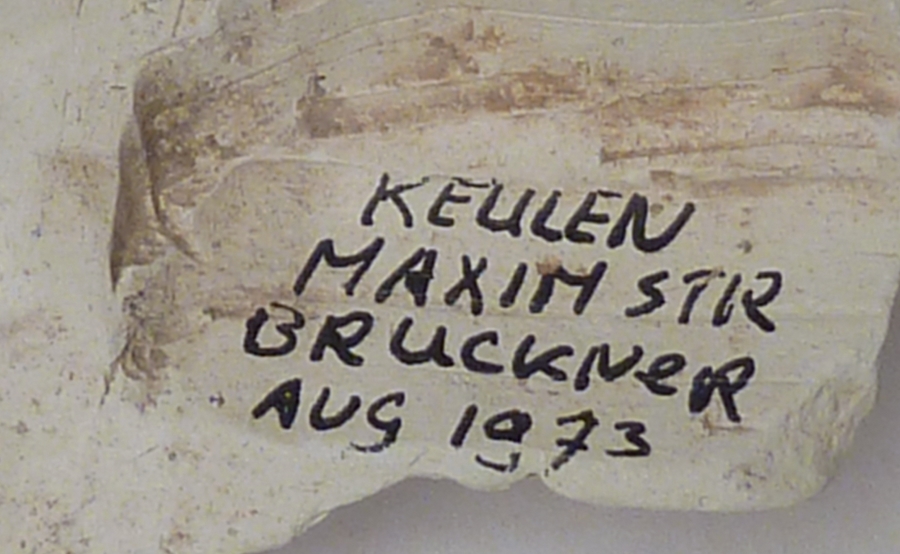 KEULEN
MAXIM STR
BRUCKNER
AUG 1973